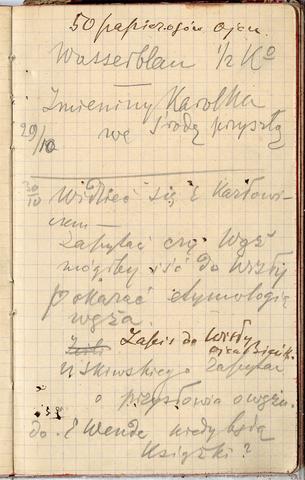 50 papierosów Ojcu
Wasserblau ½ Kº
Imieniny Karolka
29/10 we środę przyszłą
30/10 Widzieć się z Karłowi-
czem
Zapytać czy Wąż
mógłby iść do Wisły
Pokazać etymologię
węża.
Zapis do Wisły
U Skiwskiego Zapytać
o przysłowia o wężu.
do. E Wende kiedy będą
Książki?